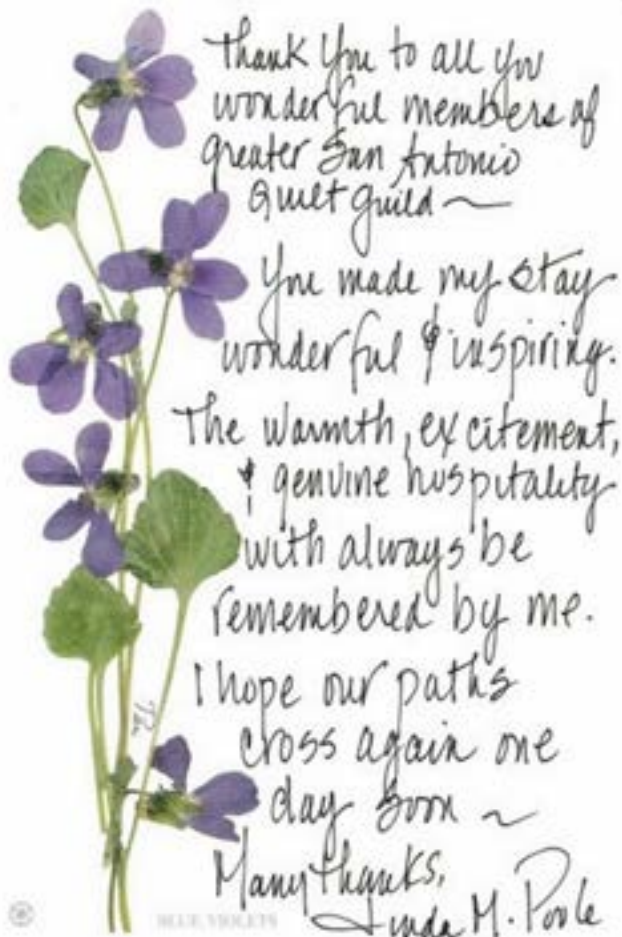 Thank You to all you
wonderful members of
greater San Antonio
Quilt Guild ~
You made my stay
wonderful & inspiring.
The warmth, excitement,
& genuine hospitality
with always be
remembered by me.
I hope our paths
cross again one
day soon ~
Many thanks,
Linda M. Poole
BLUE VIOLETS